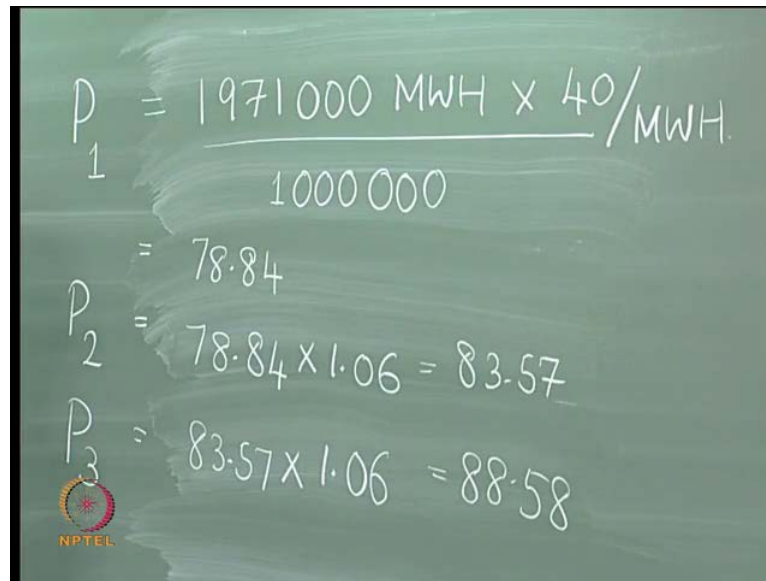 P1 = 1971000 MWH X 40/MWH.
1000 000
= 78.84
P2 = 78.84 X 1.06 = 83.57
P3 = 83.57 X 1.06 = 88.58
NPTEL